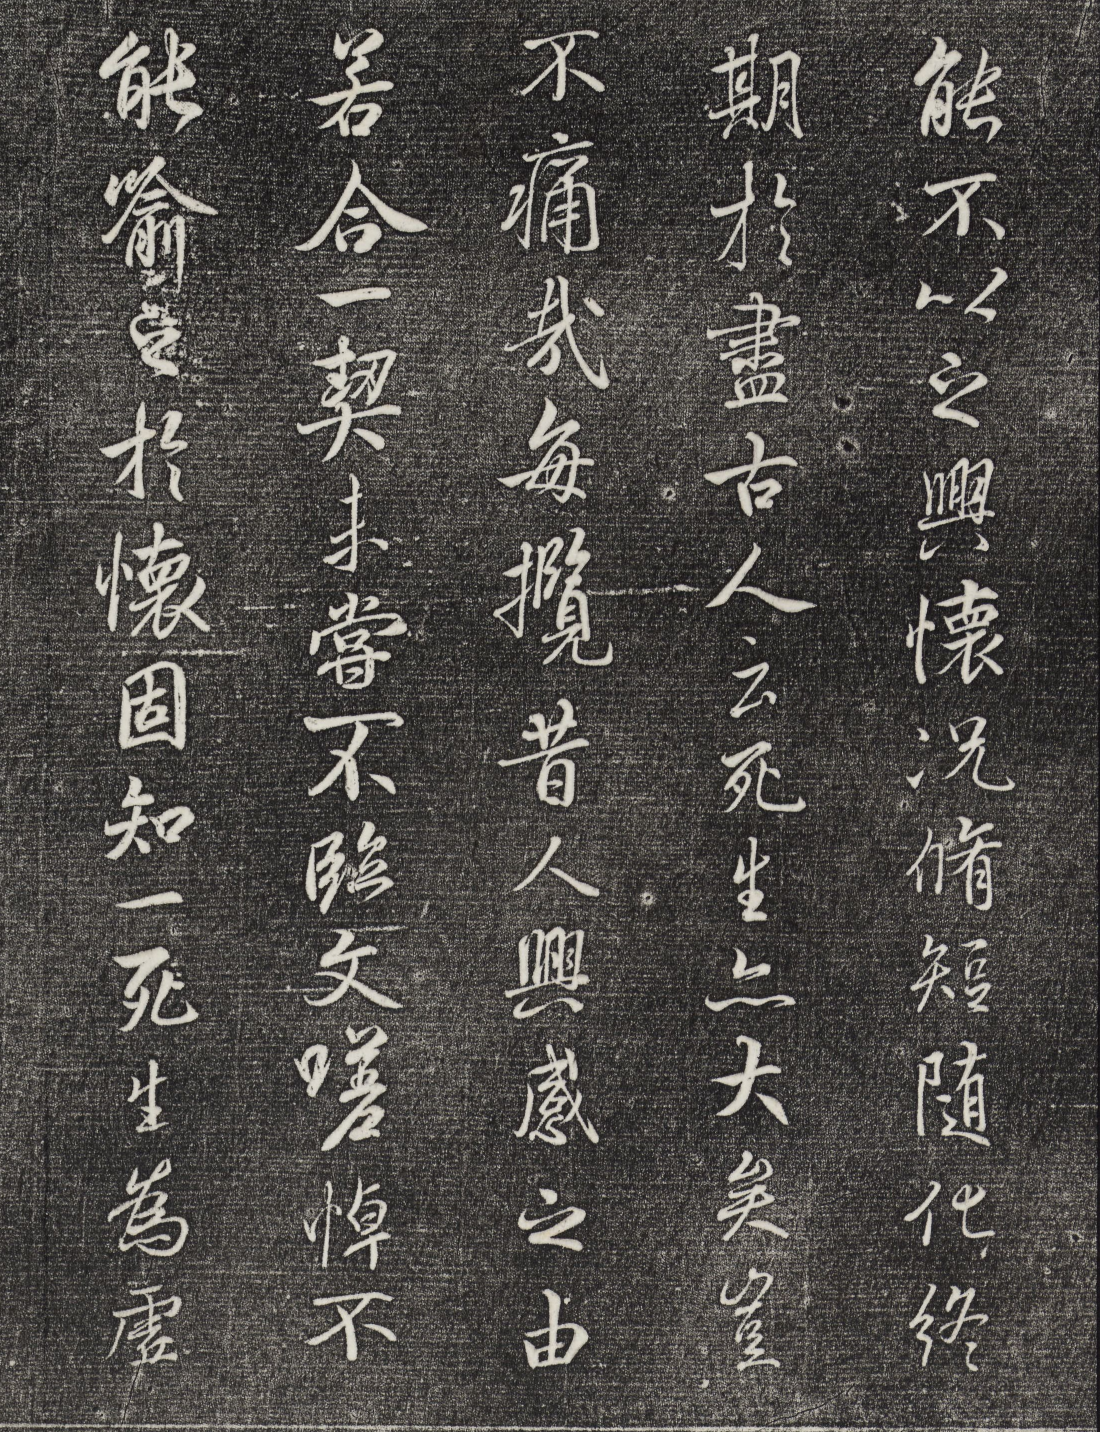 能不以之興懷況脩短隨化終
期於盡古人云死生亦大矣豈
不痛哉每攬昔人興感之由
若合一契未嘗不臨文嗟悼不
能喻之於懷固知一死生為虛